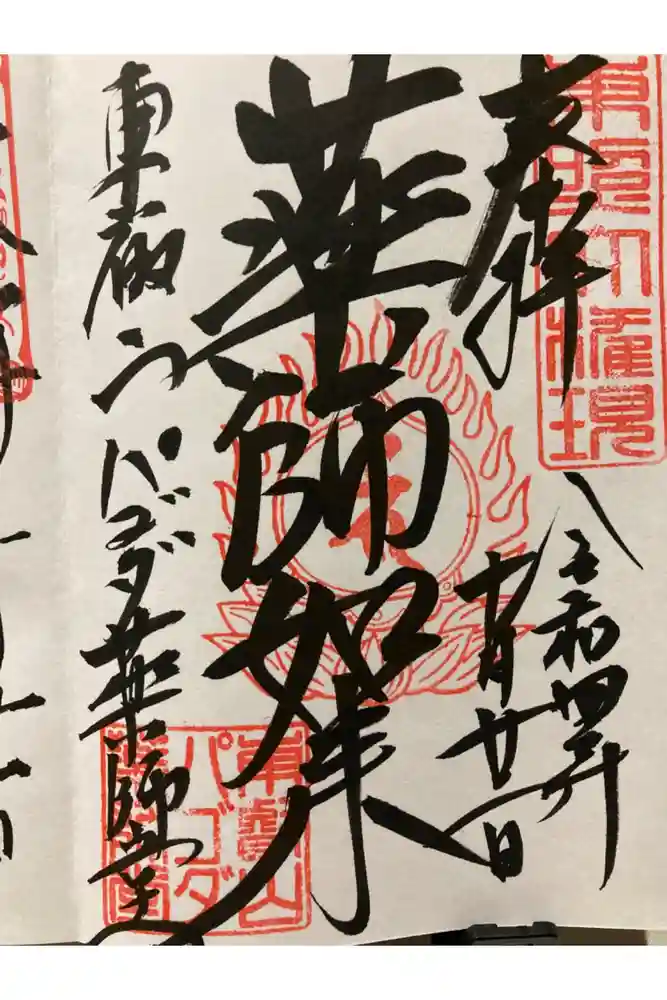 東照大権現
奉拝
令和四年
十月廿一日
薬師如来
東叡山パゴダ薬師堂
東叡山
パゴダ
薬師堂